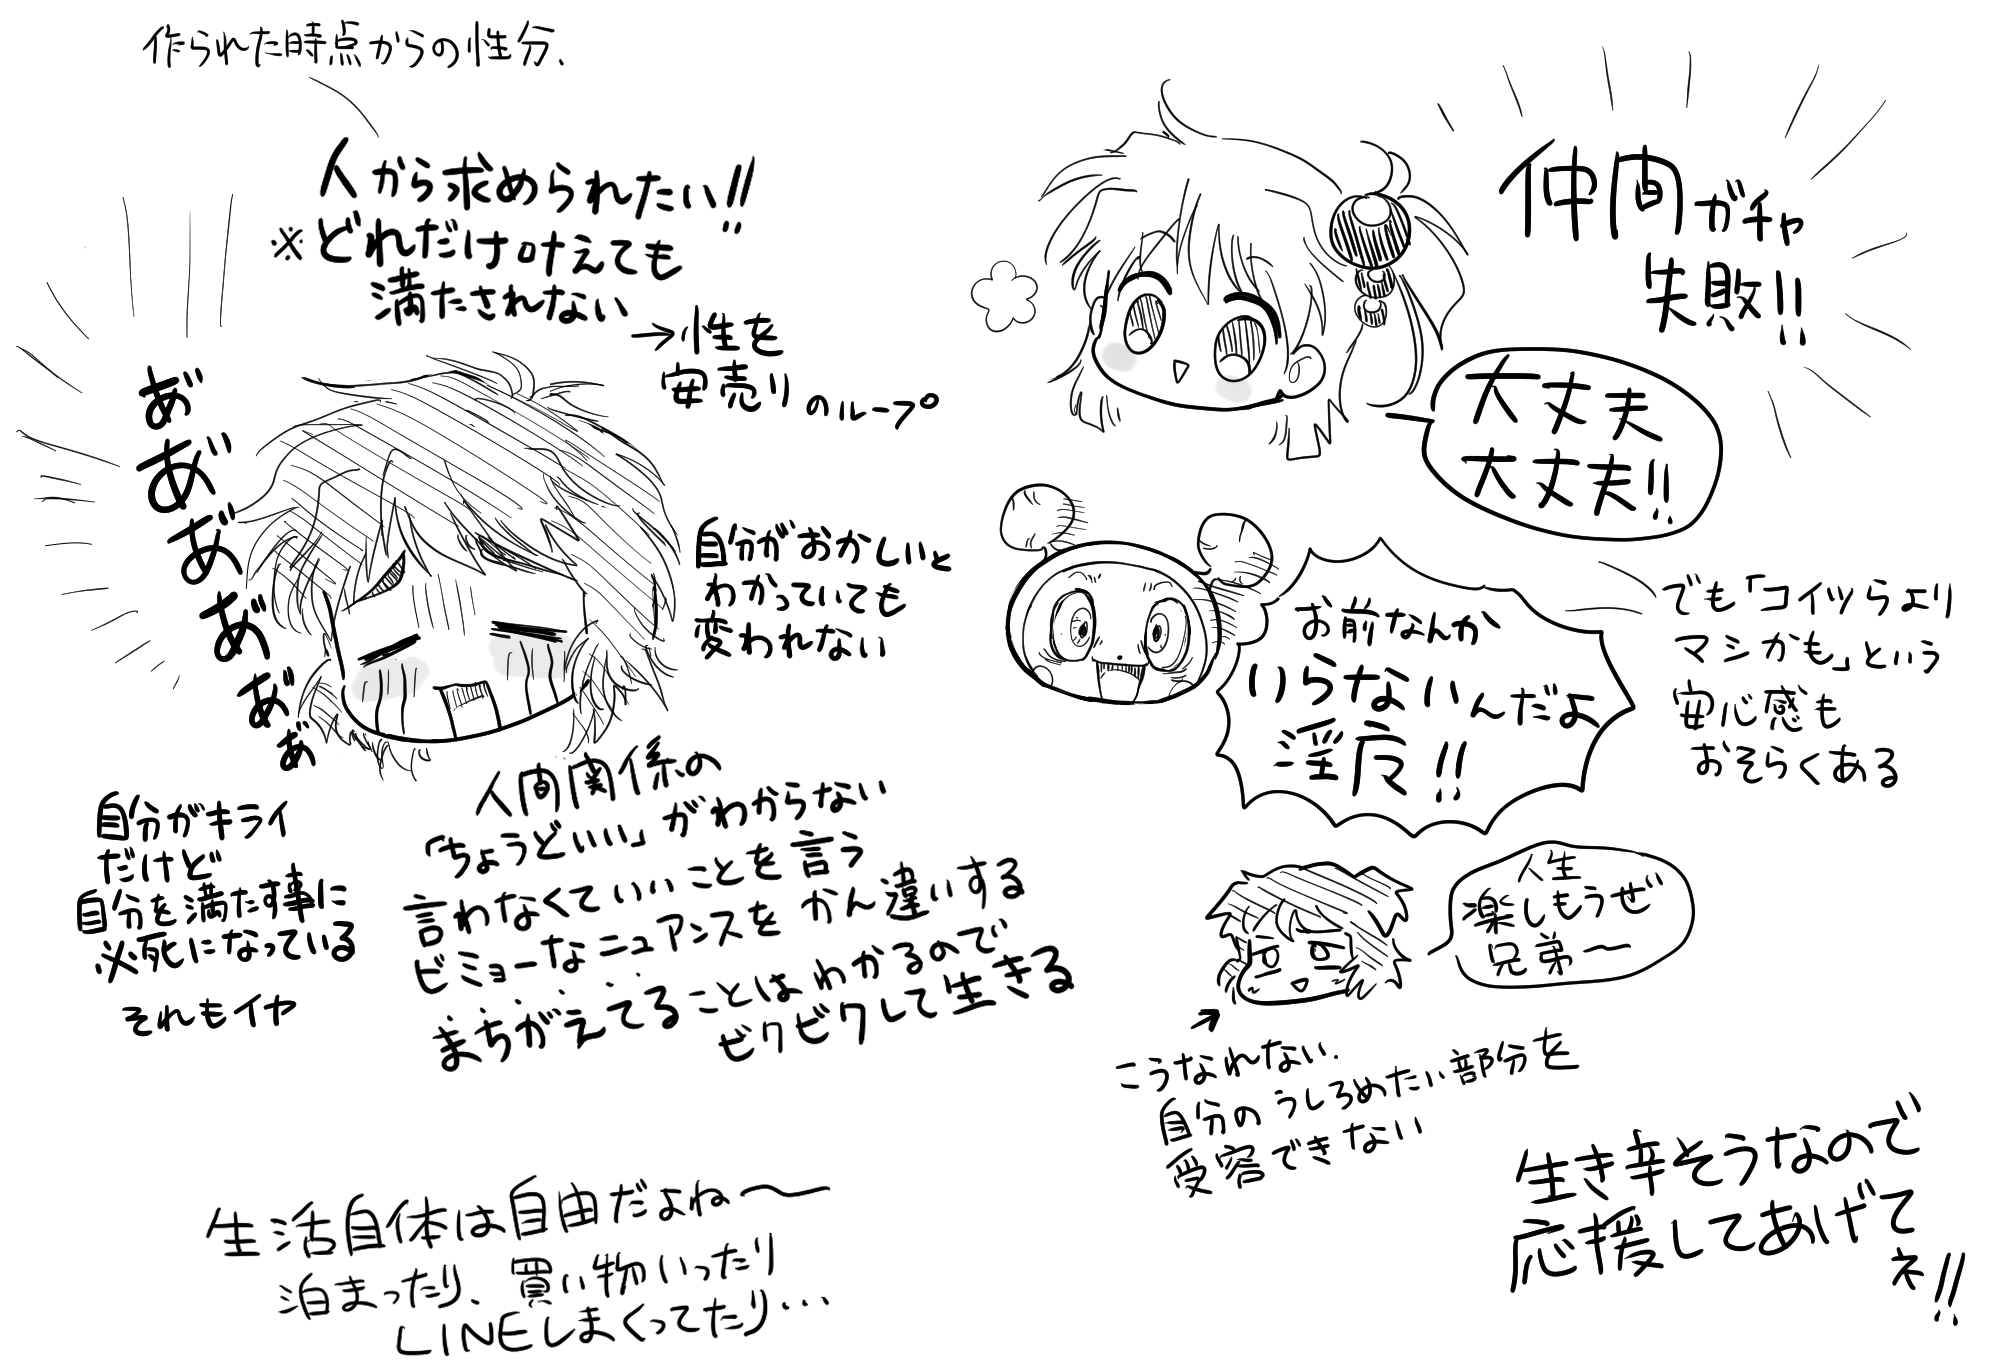 作られた時点からの性分、
人から求められたい!!
※どれだけ叶えても
満たされない
→性を
安売りのループ
あ゛あ゛あ゛あ゛あ゛あ゛
自分がおかしいと
わかっていても
変われない
自分がキライ
だけど
自分を満たす事に
必死になっている
それもイヤ
人間関係の
「ちょうどいい」がわからない
言わなくていいことを言う
ビミョーなニュアンスをかん違いする
まちがえてることはわかるので
ビクビクして生きる
生活自体は自由だよね〜
泊まったり、買い物いったり
LINEしまくってたり…
仲間ガチャ
失敗!!
大丈夫
大丈夫!!
お前なんか
いらないんだよ
淫広!!
でも「コイツらより
マシかも」という
安心感も
おそらくある
人生
楽しもうぜ
兄弟〜
こうなれない.
自分のうしろめたい部分を
受容できない
生き辛そうなので
応援してあげて
ネ!!